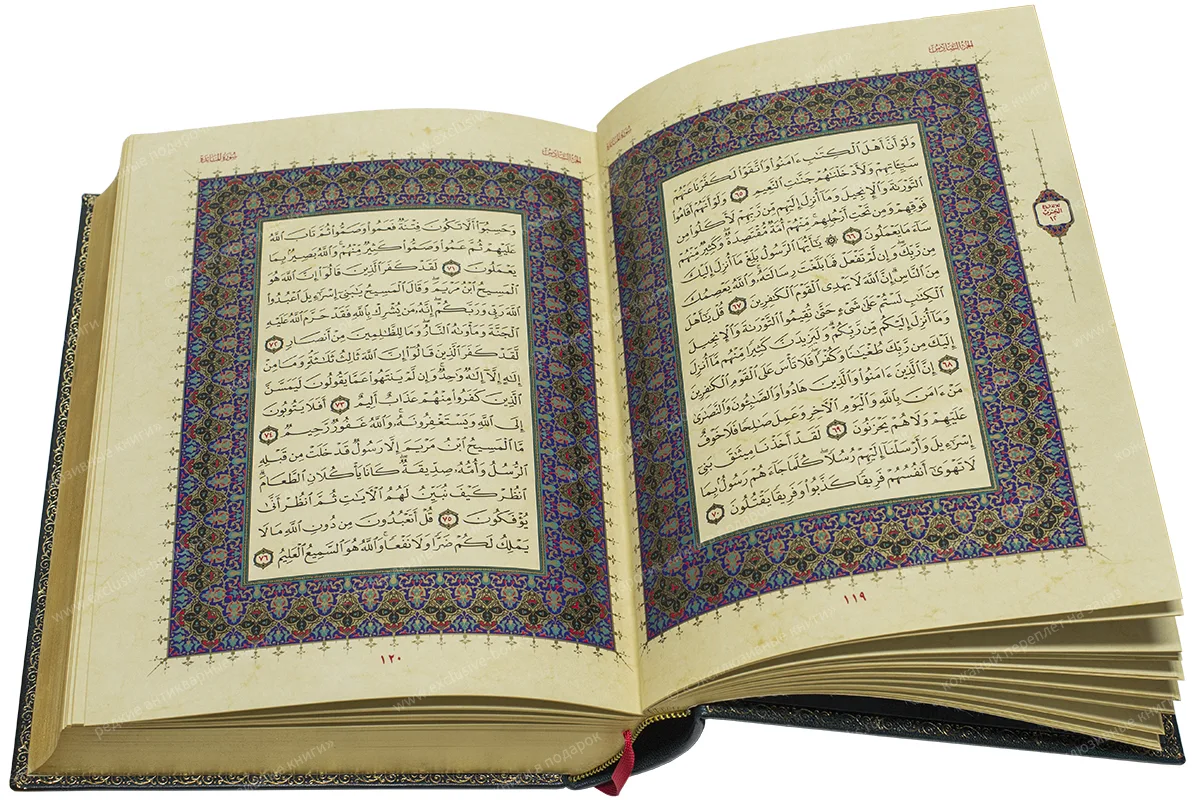 الجزء السادس
سورة المائدة
وَلَوْ أَنَّ أَهْلَ ٱلْكِتَٰبِ ءَامَنُوا۟ وَٱتَّقَوْا۟ لَكَفَّرْنَا عَنْهُمْ
سَيِّـَٔاتِهِمْ وَلَأَدْخَلْنَٰهُمْ جَنَّٰتِ ٱلنَّعِيمِ ٦٥ وَلَوْ أَنَّهُمْ أَقَامُوا۟
ٱلتَّوْرَىٰةَ وَٱلْإِنجِيلَ وَمَآ أُنزِلَ إِلَيْهِم مِّن رَّبِّهِمْ لَأَكَلُوا۟ مِن
فَوْقِهِمْ وَمِن تَحْتِ أَرْجُلِهِم مِّنْهُمْ أُمَّةٌ مُّقْتَصِدَةٌ وَكَثِيرٌ مِّنْهُمْ
سَآءَ مَا يَعْمَلُونَ ٦٦ ۞ يَٰٓأَيُّهَا ٱلرَّسُولُ بَلِّغْ مَآ أُنزِلَ إِلَيْكَ
مِن رَّبِّكَ وَإِن لَّمْ تَفْعَلْ فَمَا بَلَّغْتَ رِسَالَتَهُۥ وَٱللَّهُ يَعْصِمُكَ
مِنَ ٱلنَّاسِ إِنَّ ٱللَّهَ لَا يَهْدِى ٱلْقَوْمَ ٱلْكَٰفِرِينَ ٦٧ قُلْ يَٰٓأَهْلَ
ٱلْكِتَٰبِ لَسْتُمْ عَلَىٰ شَىْءٍ حَتَّىٰ تُقِيمُوا۟ ٱلتَّوْرَىٰةَ وَٱلْإِنجِيلَ
وَمَآ أُنزِلَ إِلَيْكُم مِّن رَّبِّكُمْ وَلَيَزِيدَنَّ كَثِيرًا مِّنْهُم مَّآ أُنزِلَ
إِلَيْكَ مِن رَّبِّكَ طُغْيَٰنًا وَكُفْرًا فَلَا تَأْسَ عَلَى ٱلْقَوْمِ ٱلْكَٰفِرِينَ
٦٨ إِنَّ ٱلَّذِينَ ءَامَنُوا۟ وَٱلَّذِينَ هَادُوا۟ وَٱلصَّٰبِـُٔونَ وَٱلنَّصَٰرَىٰ
مَنْ ءَامَنَ بِٱللَّهِ وَٱلْيَوْمِ ٱلْءَاخِرِ وَعَمِلَ صَٰلِحًا فَلَا خَوْفٌ
عَلَيْهِمْ وَلَا هُمْ يَحْزَنُونَ ٦٩ لَقَدْ أَخَذْنَا مِيثَٰقَ بَنِىٓ
إِسْرَٰٓءِيلَ وَأَرْسَلْنَآ إِلَيْهِمْ رُسُلًا كُلَّمَا جَآءَهُمْ رَسُولٌۢ بِمَا
لَا تَهْوَىٰٓ أَنفُسُهُمْ فَرِيقًا كَذَّبُوا۟ وَفَرِيقًا يَقْتُلُونَ ٧٠
١١٩
الحزب
١٢
الجزء السادس
سورة المائدة
وَحَسِبُوٓا۟ أَلَّا تَكُونَ فِتْنَةٌ فَعَمُوا۟ وَصَمُّوا۟ ثُمَّ تَابَ ٱللَّهُ
عَلَيْهِمْ ثُمَّ عَمُوا۟ وَصَمُّوا۟ كَثِيرٌ مِّنْهُمْ وَٱللَّهُ بَصِيرٌۢ بِمَا
يَعْمَلُونَ ٧١ لَقَدْ كَفَرَ ٱلَّذِينَ قَالُوٓا۟ إِنَّ ٱللَّهَ هُوَ
ٱلْمَسِيحُ ٱبْنُ مَرْيَمَ وَقَالَ ٱلْمَسِيحُ يَٰبَنِىٓ إِسْرَٰٓءِيلَ ٱعْبُدُوا۟
ٱللَّهَ رَبِّى وَرَبَّكُمْ إِنَّهُۥ مَن يُشْرِكْ بِٱللَّهِ فَقَدْ حَرَّمَ ٱللَّهُ عَلَيْهِ
ٱلْجَنَّةَ وَمَأْوَىٰهُ ٱلنَّارُ وَمَا لِلظَّٰلِمِينَ مِنْ أَنصَارٍ ٧٢
لَّقَدْ كَفَرَ ٱلَّذِينَ قَالُوٓا۟ إِنَّ ٱللَّهَ ثَالِثُ ثَلَٰثَةٍ وَمَا مِنْ
إِلَٰهٍ إِلَّآ إِلَٰهٌ وَٰحِدٌ وَإِن لَّمْ يَنتَهُوا۟ عَمَّا يَقُولُونَ لَيَمَسَّنَّ
ٱلَّذِينَ كَفَرُوا۟ مِنْهُمْ عَذَابٌ أَلِيمٌ ٧٣ أَفَلَا يَتُوبُونَ
إِلَى ٱللَّهِ وَيَسْتَغْفِرُونَهُۥ وَٱللَّهُ غَفُورٌ رَّحِيمٌ ٧٤
مَّا ٱلْمَسِيحُ ٱبْنُ مَرْيَمَ إِلَّا رَسُولٌ قَدْ خَلَتْ مِن قَبْلِهِ
ٱلرُّسُلُ وَأُمُّهُۥ صِدِّيقَةٌ كَانَا يَأْكُلَانِ ٱلطَّعَامَ
ٱنظُرْ كَيْفَ نُبَيِّنُ لَهُمُ ٱلْءَايَٰتِ ثُمَّ ٱنظُرْ أَنَّىٰ
يُؤْفَكُونَ ٧٥ قُلْ أَتَعْبُدُونَ مِن دُونِ ٱللَّهِ مَا لَا
يَمْلِكُ لَكُمْ ضَرًّا وَلَا نَفْعًا وَٱللَّهُ هُوَ ٱلسَّمِيعُ ٱلْعَلِيمُ ٧٦
١٢٠